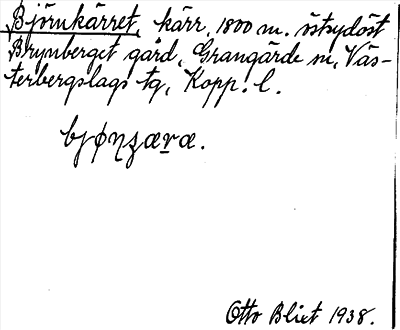 Björnkärret, kärr, 1800 m. östsydöst
Brynberget gård, Grangärde sn, Väs-
terbergslags tg, Kopp. l.
bjɸɳʒæræ.
Otto Blixt 1938.